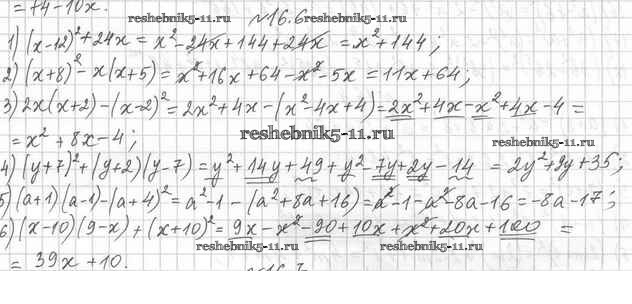 = 74-10x.
reshebnik5-11.ru
№16.6
1) (x-12)²+24x = x²-24x+144+24x = x²+144;
2) (x+8)²-x(x+5) = x²+16x+64-x²-5x = 11x+64;
3) 2x(x+2)-(x-2)² = 2x²+4x-(x²-4x+4) = 2x²+4x-x²+4x-4 =
= x²+8x-4;
reshebnik5-11.ru
reshebnik5-11.ru
4) (y+7)²+(y+2)(y-7) = y²+14y+49+y²-7y+2y-14 = 2y²+9y+35;
5) (a+1)(a-1)-(a+4)² = a²-1-(a²+8a+16) = a²-1-a²-8a-16 = -8a-17;
6) (x-10)(9-x)+(x+10)² = 9x-x²-90+10x+x²+20x+100 =
reshebnik5-11.ru
reshebnik5-11.ru
= 39x+10.
№16.7